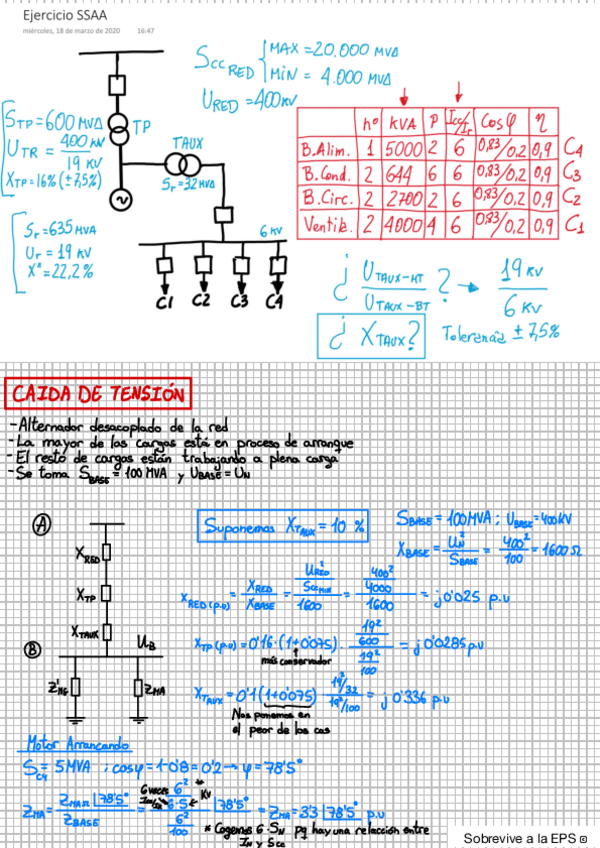 Ejercicio SSAA
miércoles, 18 de marzo de 2020 16:47
Scc RED { MAX = 20.000 MVA
MIN = 4.000 MVA
URED = 400 kV
STP = 600 MVA
UTR = 400 kV / 19 kV
XTP = 16% (±7,5%)
TP
TAUX
Sr = 32 MVA
Sr = 635 MVA
Ur = 19 kV
X" = 22,2%
6 kV
C1 C2 C3 C4
nº KVA P Icc/Ir Cosφ η
B.Alim. 1 5000 2 6 0,83/0,2 0,9 C4
B.Cond. 2 644 6 6 0,83/0,2 0,9 C3
B.Circ. 2 2700 2 6 0,83/0,2 0,9 C2
Ventila. 2 4000 4 6 0,83/0,2 0,9 C1
¿ UTAUX-HT / UTAUX-BT ? → 19 kV / 6 kV
¿ XTAUX? Tolerancia ± 7,5%
CAIDA DE TENSIÓN
- Alternador desacoplado de la red
- La mayor de las cargas está en proceso de arranque
- El resto de cargas están trabajando a plena carga
- Se toma SBASE = 100 MVA y UBASE = UN
A
XRED
XTP
XTAUX
B
UB
ZMA
Suponemos XTAUX = 10 %
SBASE = 100MVA ; UBASE = 400KV
XBASE = UN² / SBASE = 400² / 100 = 1600 Ω
XRED (p.u) = XRED / XBASE = (URED² / SccMIN) / 1600 = (400² / 4000) / 1600 = j0'025 p.u
XTP (p.u) = 0'16 · (1+0'075) · (19² / 600) / (19² / 100) = j0'0285 p.u
más conservador
XTAUX = 0'1 (1+0'075) · (19²/32) / (19²/100) = j0'336 p.u
Nos ponemos en
el peor de los cas
Motor Arrancando
SC4 = 5 MVA ; cosφ = 1-0'8 = 0'2 → φ = 78'5°
6 veces
KV
ZMA = ZMA |78'5° / ZBASE = (6² / 6·5) |78'5° / (6² / 100) = ZMA = 3'3 |78'5° p.u
* Cogemos 6·SN pq hay una relacción entre
IN y Scc
Sobrevive a la EPS